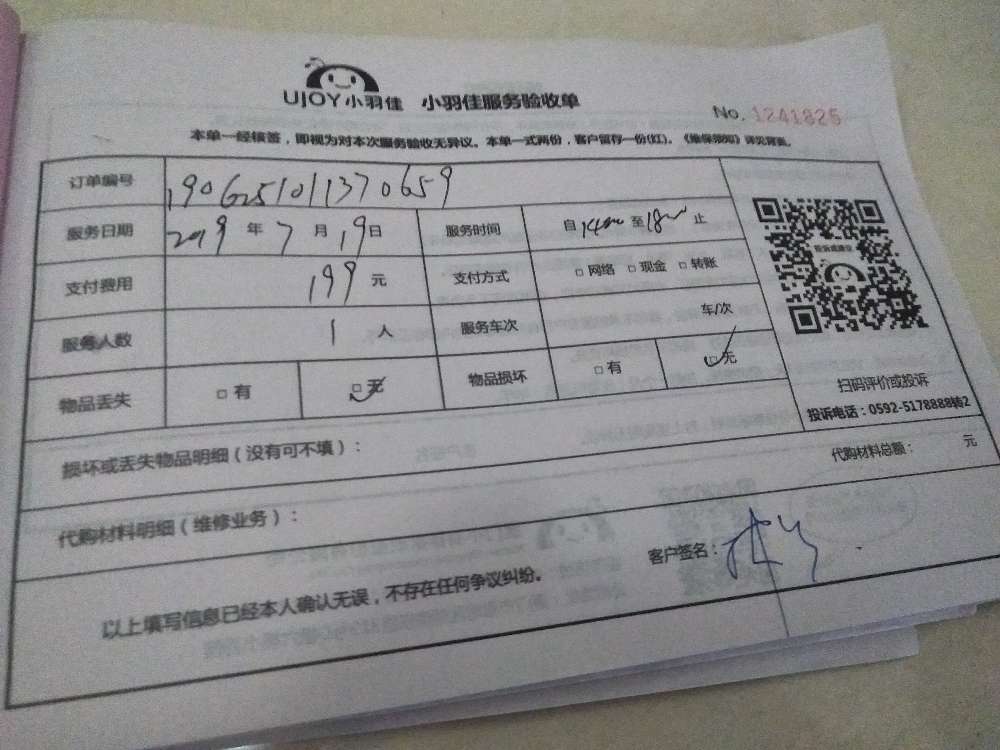 UJOY小羽佳 小羽佳服务验收单
No. 1241825
本单一经核签，即视为对本次服务验收无异议。本单一式两份，客户留存一份(红)。《维保须知》详见背面。
订单编号 190625101137065９
服务日期 2019 年 7 月 19 日 服务时间 自 1400 至 1800 止
支付费用 199 元 支付方式 □ 网络 □ 现金 □ 转账
服务人数 1 人 服务车次 车/次
物品丢失 □ 有 □ 无 物品损坏 □ 有 □ 无
投诉或建议
扫码评价或投诉
投诉电话：0592-5178888转2
损坏或丢失物品明细（没有可不填）：
代购材料明细（维修业务）： 代购材料总额： 元
以上填写信息已经本人确认无误，不存在任何争议纠纷。 客户签名：